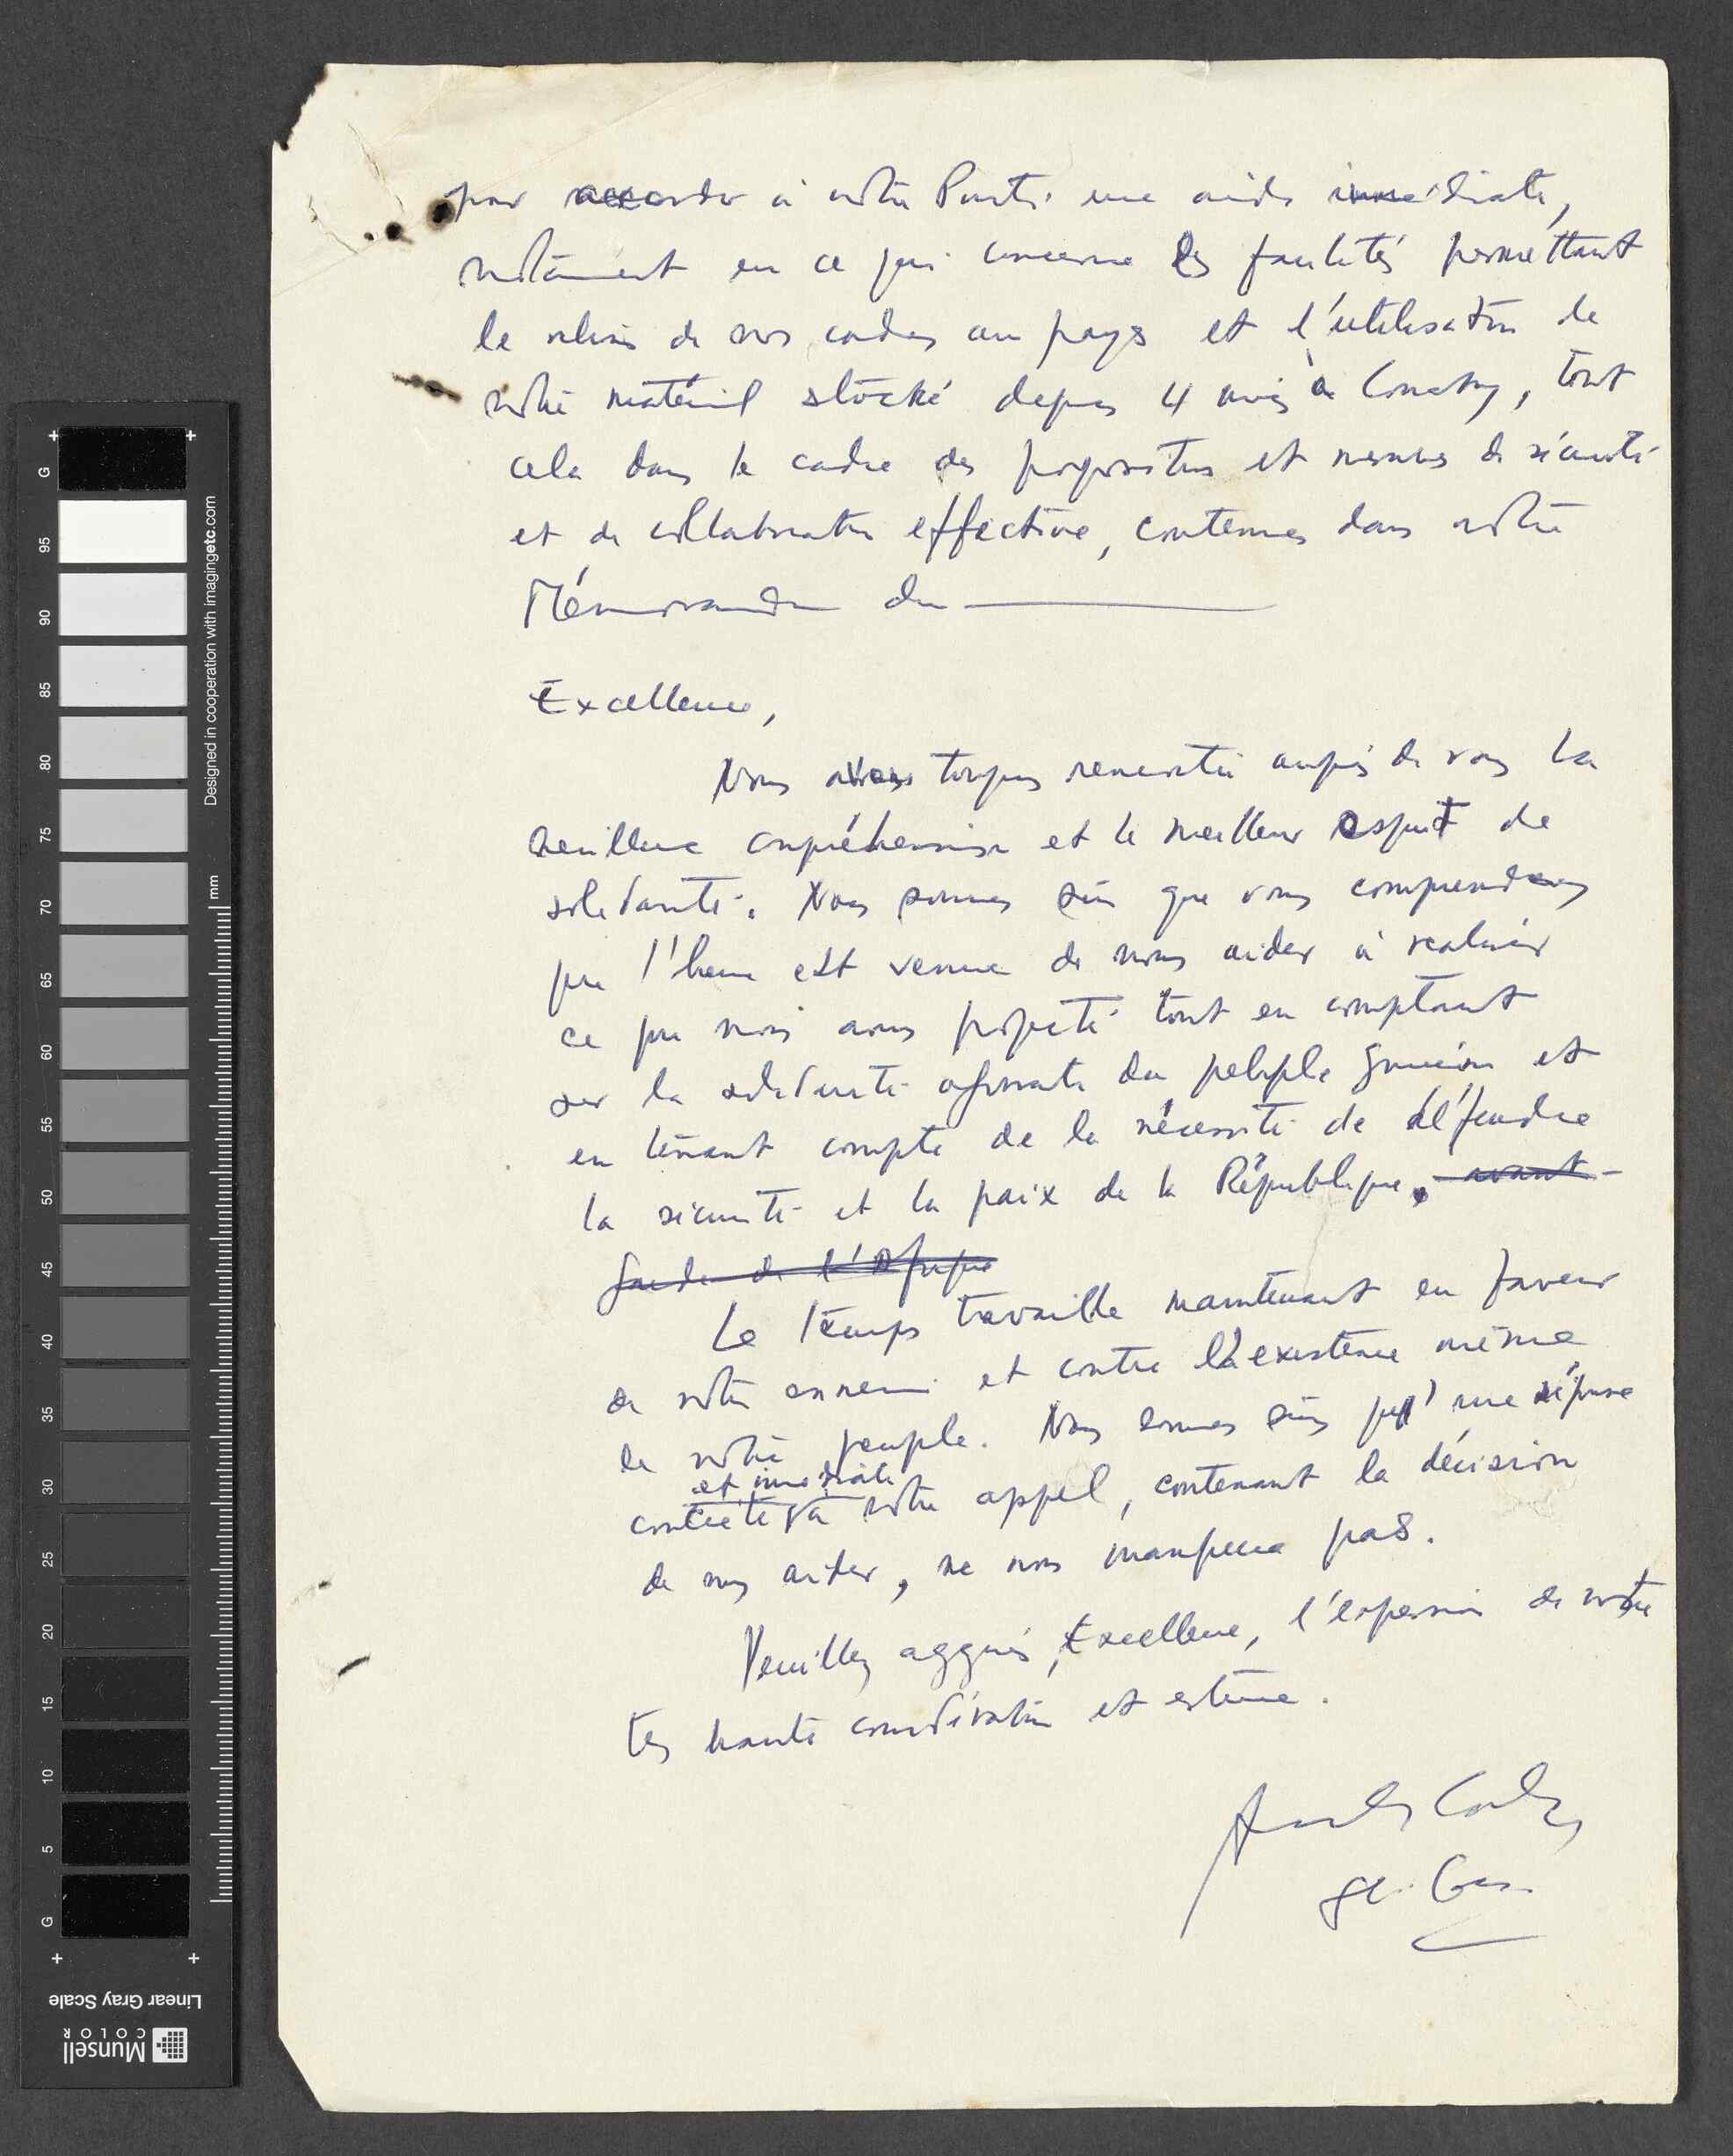 pour accorder à notre Parti une aide immédiate,
notamment en ce qui concerne les facilités permettant
le retour de nos cadres au pays et l'utilisation de
notre matériel stocké depuis 4 mois à Conakry, tout
cela dans le cadre des propositions et mesures de sécurité
et de collaboration effective, contenues dans notre
Mémorandum du
Excellence,
Nous avons toujours rencontré auprès de vous la
meilleure compréhension et le meilleur esprit de
solidarité. Nous sommes sûrs que vous comprendrez
que l'heure est venue de nous aider à réaliser
ce que nous avons projeté tout en comptant
sur la solidarité agissante du peuple guinéen et
en tenant compte de la nécessité de défendre
la sécurité et la paix de la République, avant
garde de l'Afrique
Le temps travaille maintenant en faveur
de notre ennemi et contre l'existence même
de notre peuple. Nous sommes sûrs qu'une réponse
et immédiate
concrète à notre appel, contenant la décision
de nous aider, ne nous manquera pas.
Veuillez aggréer, Excellence, l'expression de notre
très haute considération et estime.